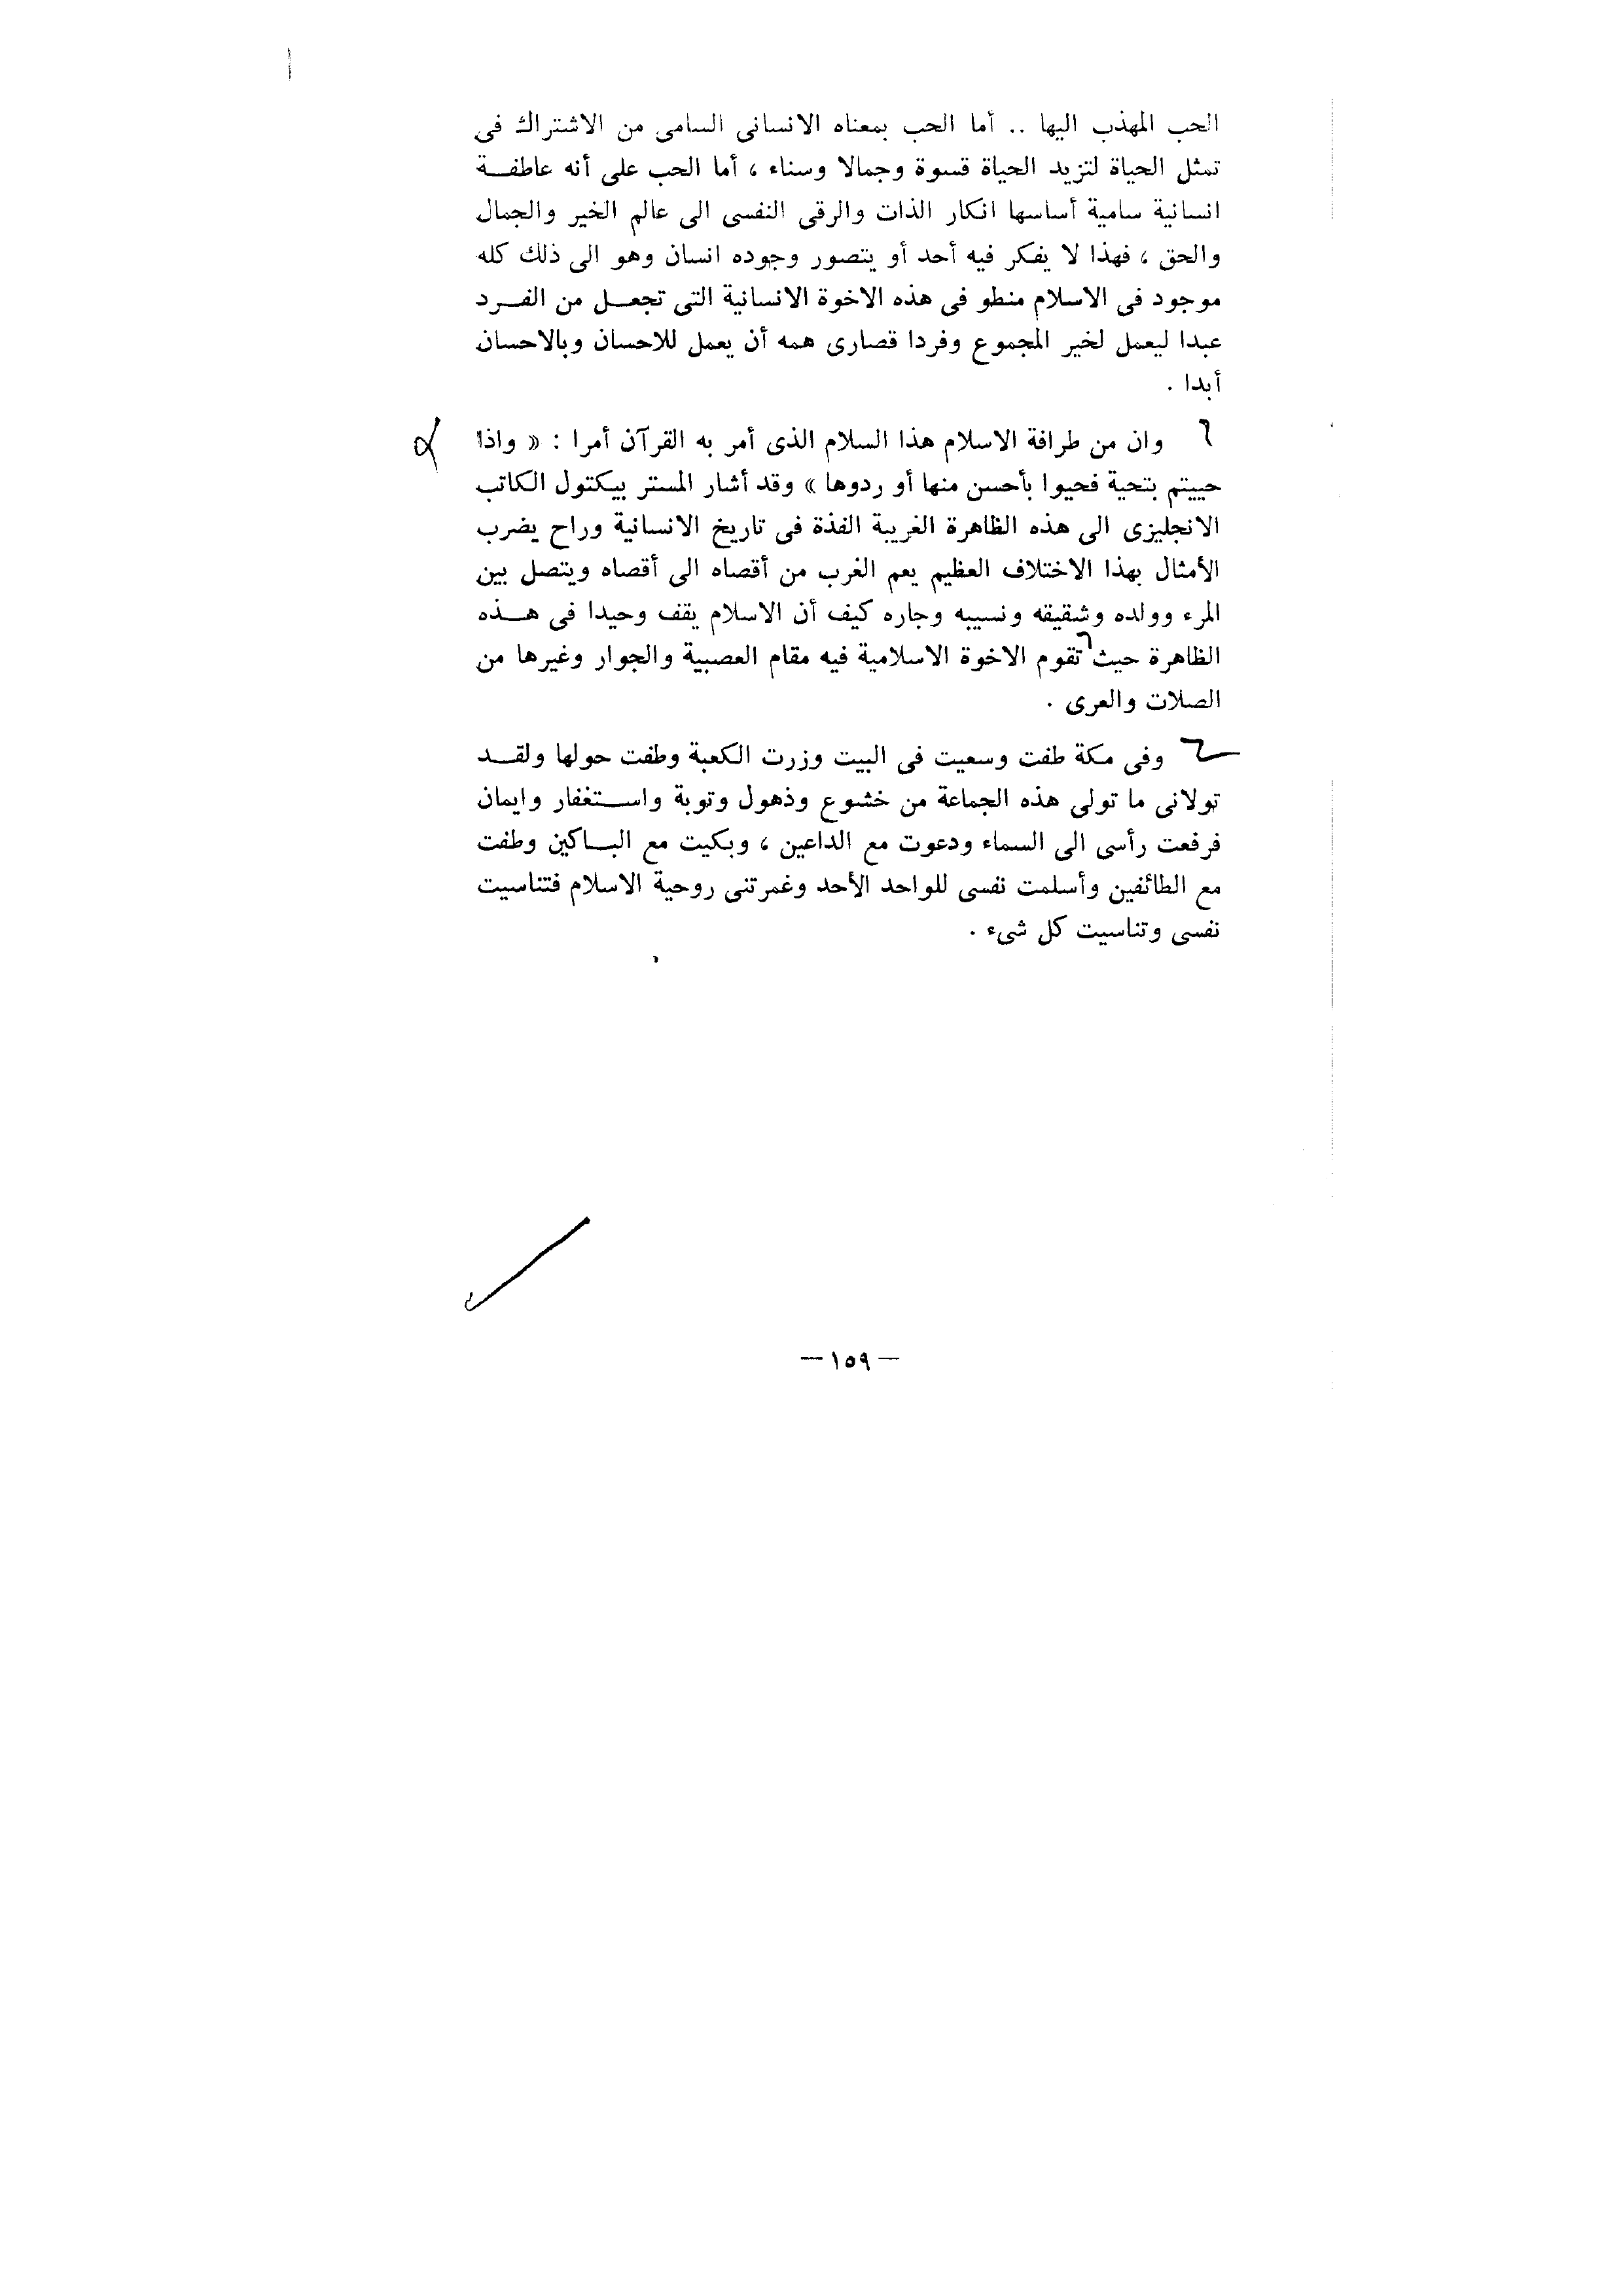 الحب المهذب اليها .. أما الحب بمعناه الانسانى السامى من الاشتراك فى
تمثل الحياة لتزيد الحياة قسوة وجمالا وسناء ، أما الحب على أنه عاطفــة
انسانية سامية أساسها انكار الذات والرقى النفسى الى عالم الخير والجمال
والحق ، فهذا لا يفكر فيه أحد أو يتصور وجوده انسان وهو الى ذلك كله
موجود فى الاسلام منطو فى هذه الاخوة الانسانية التى تجعــل من الفــرد
عبدا ليعمل لخير المجموع وفردا قصارى همه أن يعمل للاحسان وبالاحسان
أبدا .
وان من طرافة الاسلام هذا السلام الذى أمر به القرآن أمرا : « واذا
حييتم بتحية فحيوا بأحسن منها أو ردوها » وقد أشار المستر بيكتول الكاتب
الانجليزى الى هذه الظاهرة الغريبة الفذة فى تاريخ الانسانية وراح يضرب
الأمثال بهذا الاختلاف العظيم يعم الغرب من أقصاه الى أقصاه ويتصل بين
المرء وولده وشقيقه ونسيبه وجاره كيف أن الاسلام يقف وحيدا فى هــذه
الظاهرة حيث تقوم الاخوة الاسلامية فيه مقام العصبية والجوار وغيرها من
الصلات والعرى .
وفى مكة طفت وسعيت فى البيت وزرت الكعبة وطفت حولها ولقــد
تولانى ما تولى هذه الجماعة من خشوع وذهول وتوبة واســتغفار وايمان
فرفعت رأسى الى السماء ودعوت مع الداعين ، وبكيت مع البــاكين وطفت
مع الطائفين وأسلمت نفسى للواحد الأحد وغمرتنى روحية الاسلام فتناسيت
نفسى وتناسيت كل شىء .
— ١٥٩ —